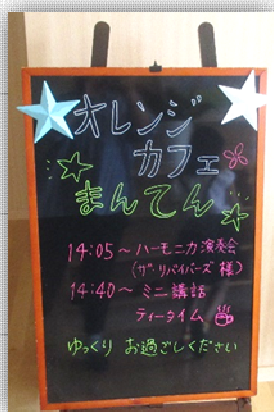 オレンジ
カフェ
まんてん
14:05～ ハーモニカ演奏会
(ザ リバイバーズ 様)
14:40～ ミニ講話
ティータイム
ゆっくり お過ごしください